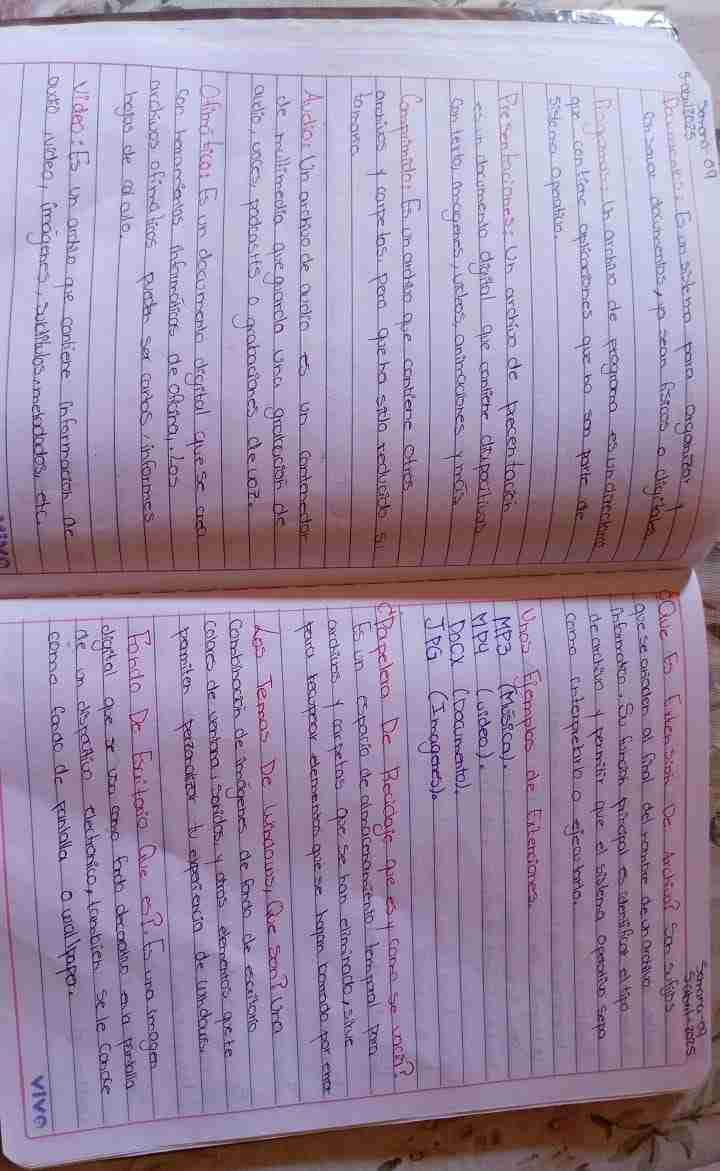 Semana 09
5 abril 2025
Documentos: Es un sistema para organizar y
conservar documentos, ya sean físicos o digitales
Programas: Un archivo de programa es un directorio
que contiene aplicaciones que no son parte de
sistema operativo.
Presentaciones: Un archivo de precentación
es un documento digital que contiene diapositivas
con texto, imágenes, videos, animaciones y más.
Comprimido: Es un archivo que contiene otros
archivos y carpetas, pero que ha sido reducido su
tamaño
Audio: Un archivo de audio es un contenedor
de multimedia que guarda una grabación de
audio, voces, podcasts o grabaciones de voz.
Ofimática: Es un documento digital que se crea
con herramientas informáticas de oficina, Los
archivos ofimáticos pueden ser cartas, informes
hojas de calculo.
Video: Es un archivo que contiene información de
audio, video, imágenes, subtítulos, metadatos, etc
VIVO
Semana-09
5-abril-2025
¿Que Es Extensión De Archivo? Son sufijos
que se añaden al final del nombre de un archivo
informático, Su función principal es identificar el tipo
de archivo y permitir que el sistema operativo sepa
como interpretarlo o ejecutarlo.
Unos Ejemplos de Extenciones.
MP3 (Música).
MP4 (video).
DOCX (Documento).
JPG (Imagenes).
¿Papelera De Reciclaje que es y como se vacía?
Es un espacio de almacenamiento temporal para
archivos y carpetas que se han eliminado, sirve
para recuperar elementos que se hayan borrado por error
Los Temas De Windows, Que Son? Una
Combinación de imágenes de fondo de escritorio
colores de ventana, sonidos y otros elementos que te
permiten personalizar tu experiencia de windows.
Fondo De Escritorio Que es?. Es una imagen
digital que se usa como fondo decorativo en la pantalla
de un dispositivo electronico, tambien se le conoce
como fondo de pantalla o wallpaper.
VIVO